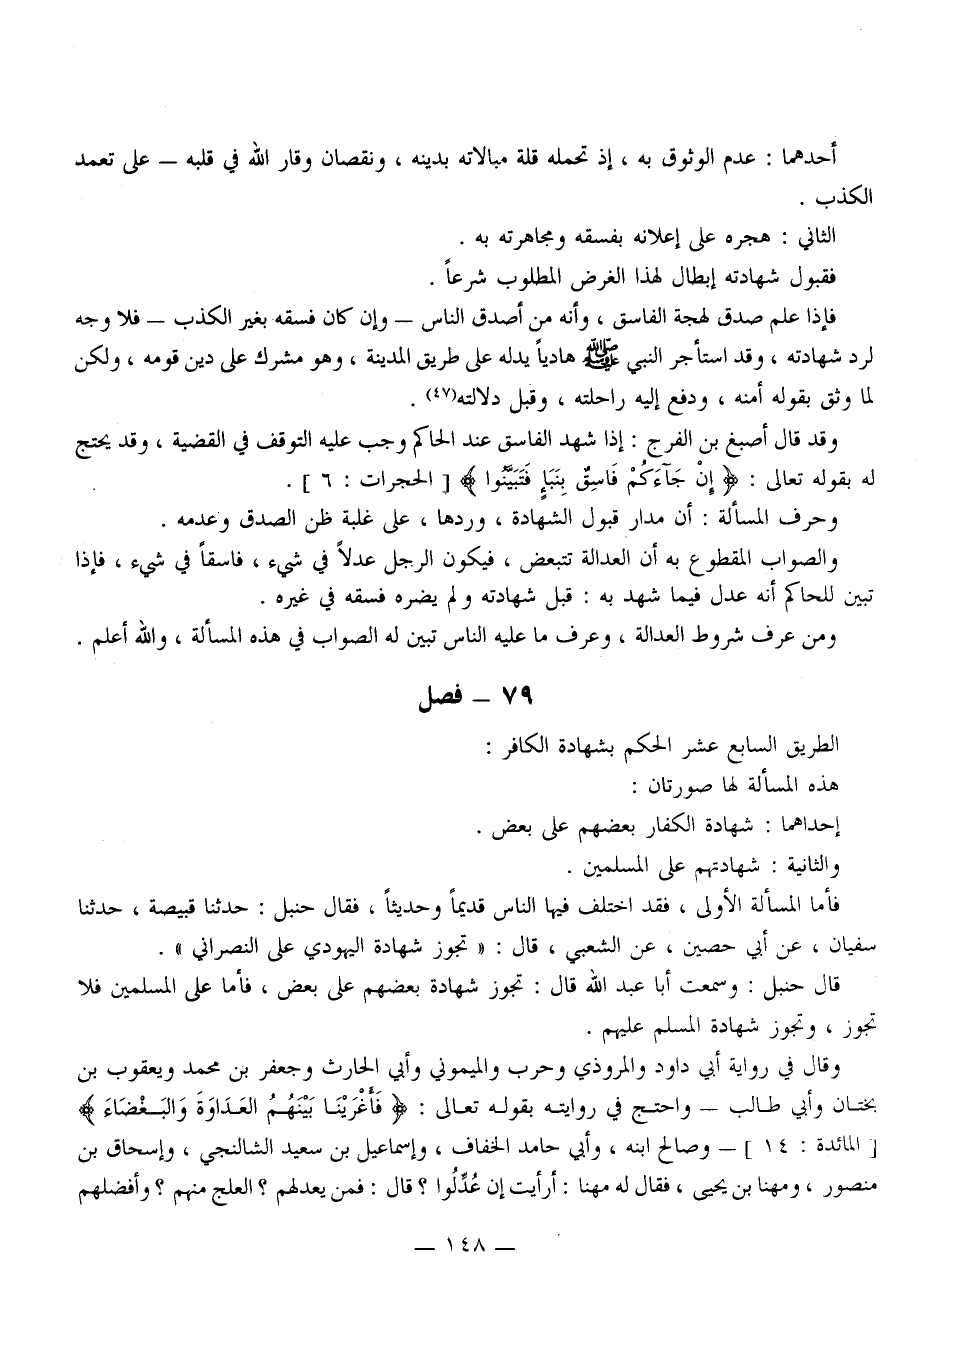 أحدهما : عدم الوثوق به ، إذ تحمله قلة مبالاته بدينه ، ونقصان وقار الله في قلبه – على تعمد
الكذب .
الثاني : هجره على إعلانه بفسقه ومجاهرته به .
فقبول شهادته إبطال لهذا الغرض المطلوب شرعاً .
فإذا علم صدق لهجة الفاسق ، وأنه من أصدق الناس – وإن كان فسقه بغير الكذب – فلا وجه
لرد شهادته ، وقد استأجر النبي ﷺ هادياً يدله على طريق المدينة ، وهو مشرك على دين قومه ، ولكن
لما وثق بقوله أمنه ، ودفع إليه راحلته ، وقبل دلالته(٤٧) .
وقد قال أصبغ بن الفرج : إذا شهد الفاسق عند الحاكم وجب عليه التوقف في القضية ، وقد يحتج
له بقوله تعالى : ﴿ إِنْ جَآءَكُمْ فَاسِقٌ بِنَبَإٍ فَتَبَيَّنُوا ﴾ [ الحجرات : ٦ ] .
وحرف المسألة : أن مدار قبول الشهادة ، وردها ، على غلبة ظن الصدق وعدمه .
والصواب المقطوع به أن العدالة تتبعض ، فيكون الرجل عدلاً في شيء ، فاسقاً في شيء ، فإذا
تبين للحاكم أنه عدل فيما شهد به : قبل شهادته ولم يضره فسقه في غيره .
ومن عرف شروط العدالة ، وعرف ما عليه الناس تبين له الصواب في هذه المسألة ، والله أعلم .
٧٩ – فصل
الطريق السابع عشر الحكم بشهادة الكافر :
هذه المسألة لها صورتان :
إحداهما : شهادة الكفار بعضهم على بعض .
والثانية : شهادتهم على المسلمين .
فأما المسألة الأولى ، فقد اختلف فيها الناس قديماً وحديثاً ، فقال حنبل : حدثنا قبيصة ، حدثنا
سفيان ، عن أبي حصين ، عن الشعبي ، قال : « تجوز شهادة اليهودي على النصراني » .
قال حنبل : وسمعت أبا عبد الله قال : تجوز شهادة بعضهم على بعض ، فأما على المسلمين فلا
تجوز ، وتجوز شهادة المسلم عليهم .
وقال في رواية أبي داود والمروذي وحرب والميموني وأبي الحارث وجعفر بن محمد ويعقوب بن
بختان وأبي طالب – واحتج في روايته بقوله تعالى : ﴿ فَأَغْرَيْنَا بَيْنَهُمُ العَدَاوَةَ وَالبَغْضَاءَ ﴾
[ المائدة : ١٤ ] – وصالح ابنه ، وأبي حامد الخفاف ، وإسماعيل بن سعيد الشالنجي ، وإسحاق بن
منصور ، ومهنا بن يحيى ، فقال له مهنا : أرأيت إن عُدِّلُوا ؟ قال : فمن يعدلهم ؟ العلج منهم ؟ وأفضلهم
– ١٤٨ –